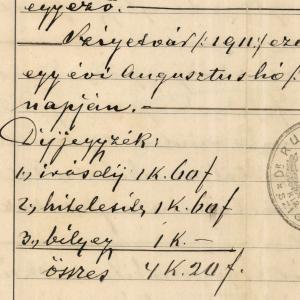 egyező.-
Fényesvár /: 1911 :/ eze
egy évi Augusztus hó /:
napján.-
Díjjegyzék:
1., írásdíj 1 K. 60 f
2., hitelesítés 1 K. 60 f
3., bélyeg 1 K.-
összes 4 K. 20 f.
DR RU